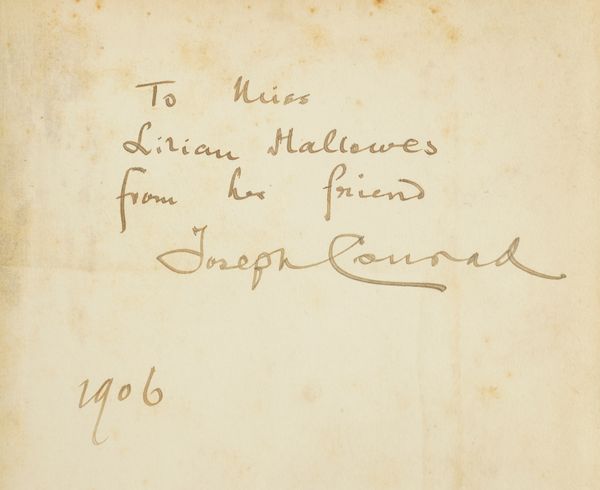 To Miss
Lilian Hallowes
from her friend
Joseph Conrad
1906